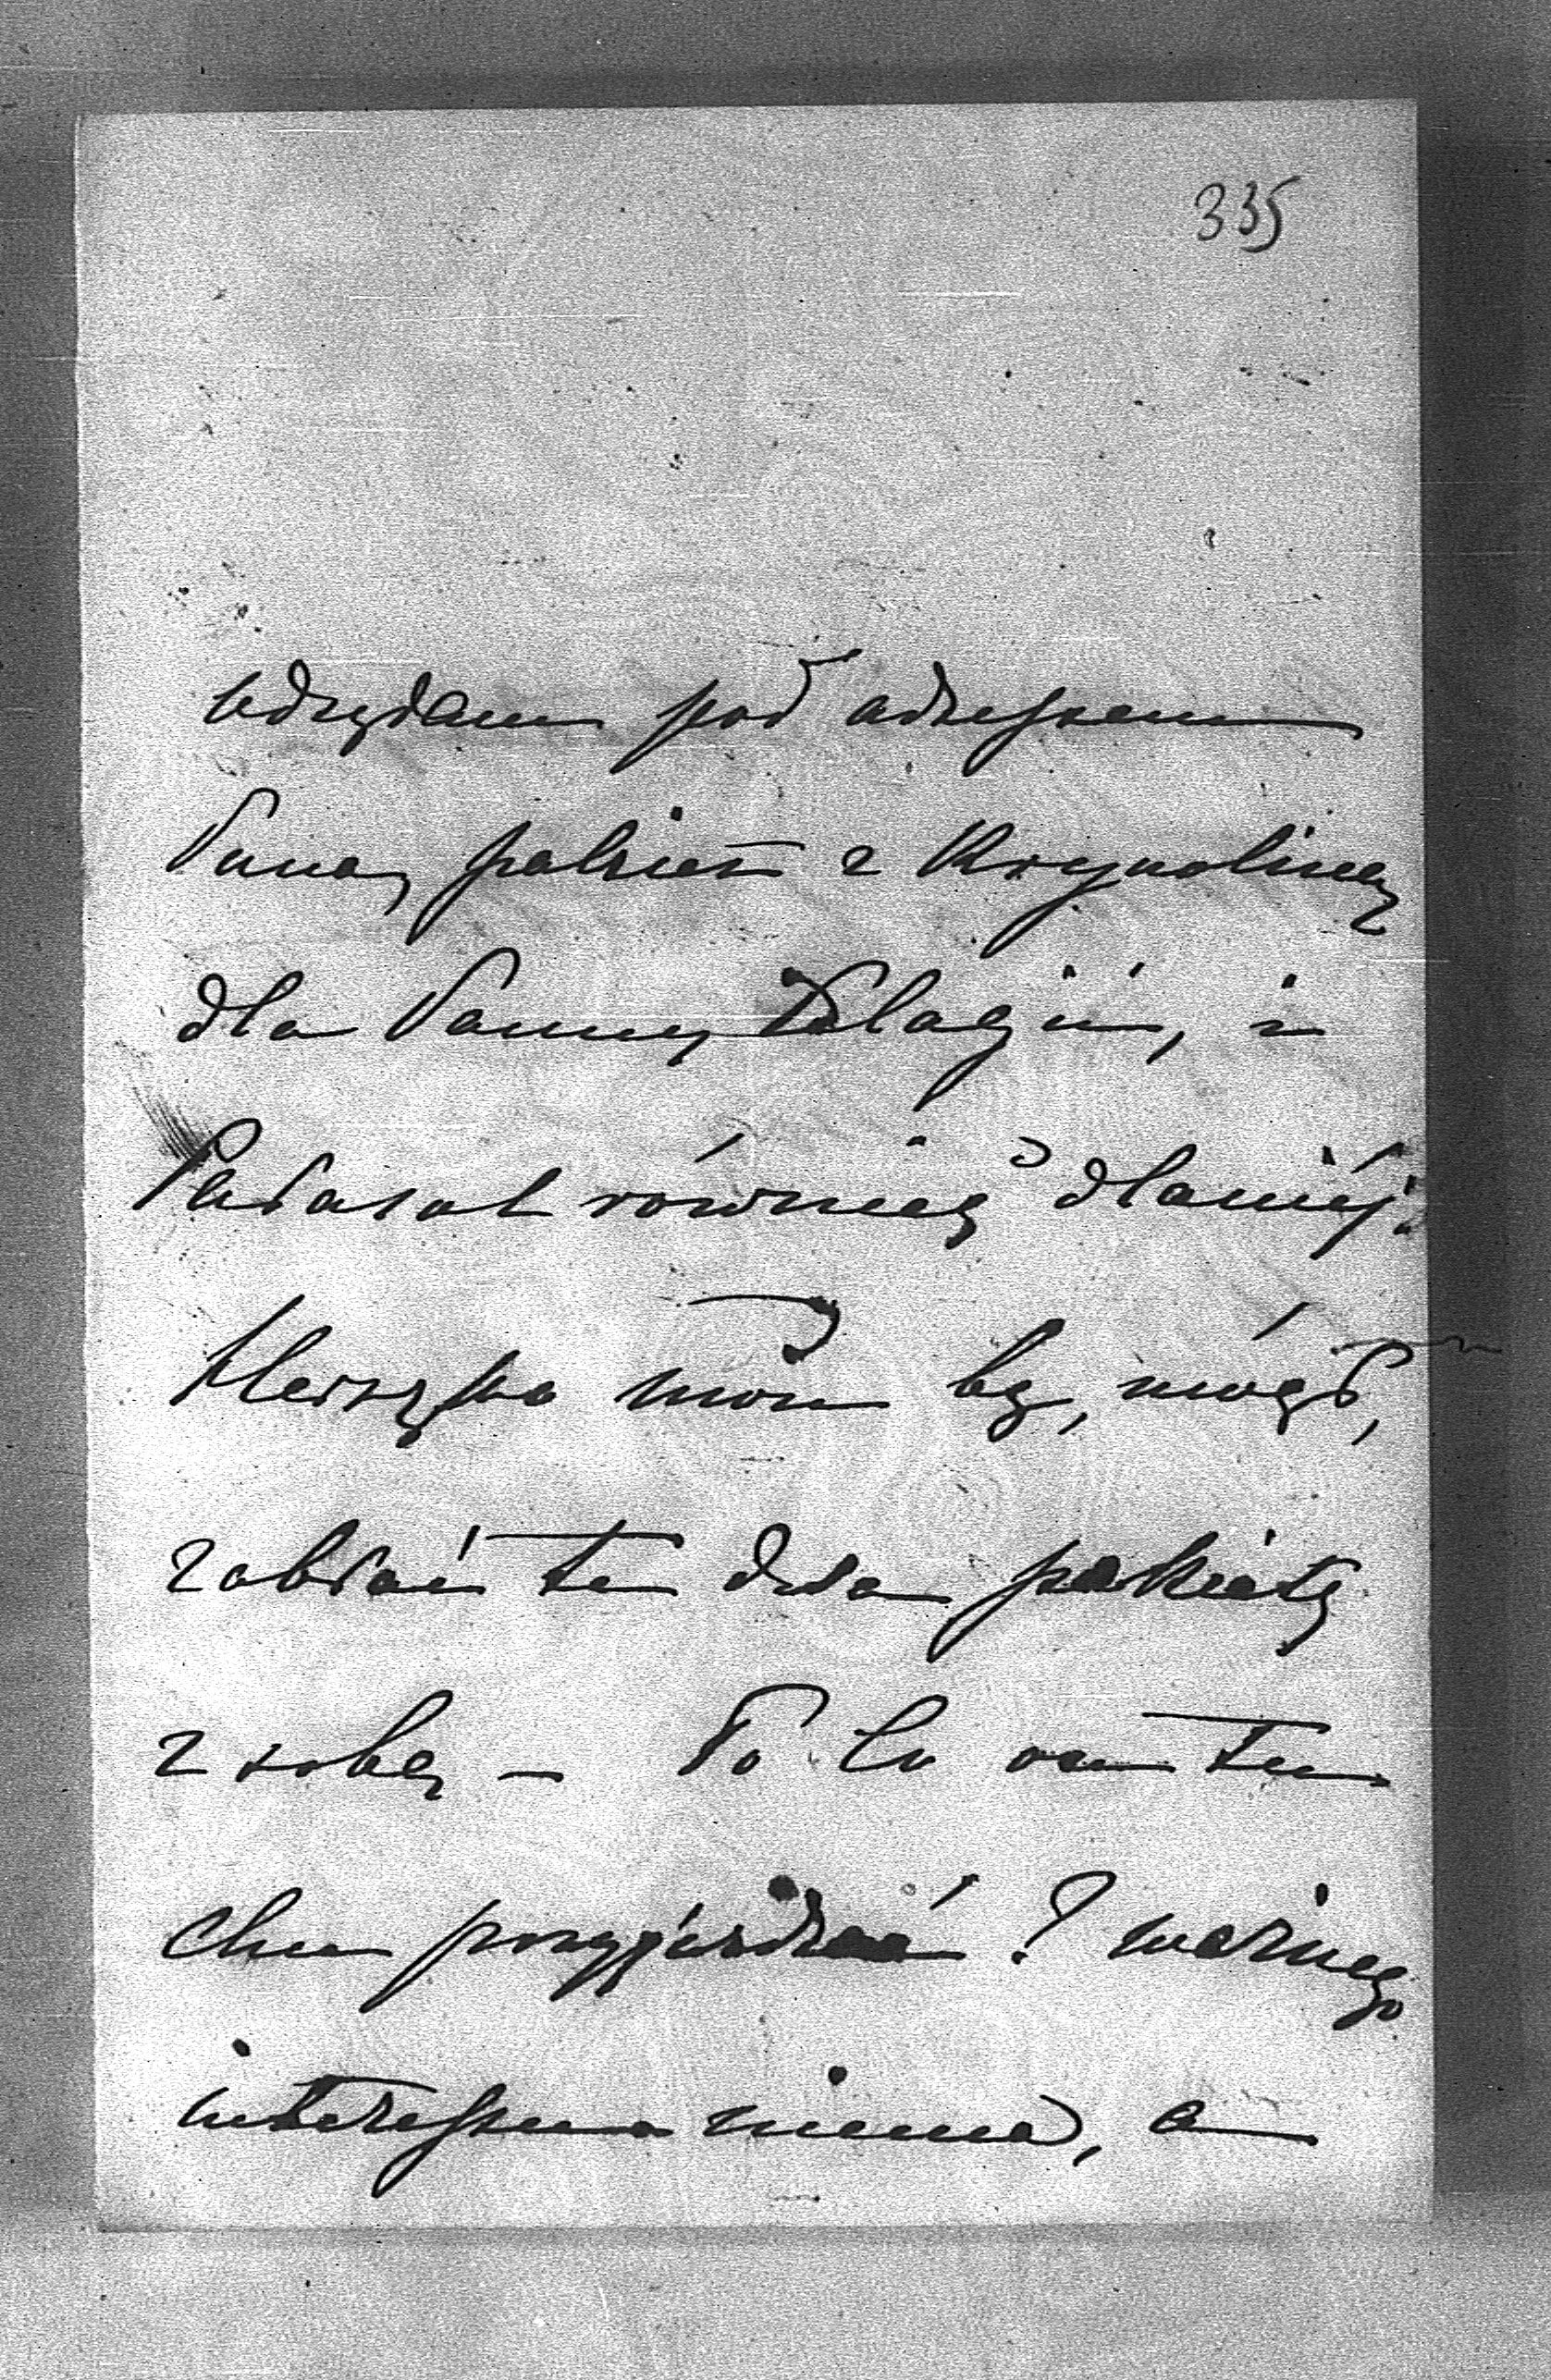 335
pod adressem
Pana, pakiet z Krynoliną
dla Panny Pelagii, i
Parasol również dla niej.
Herszko móm by, mógł,
zabrać te dwa pakiety
z sobą – Po co on tu
chce przyjeżdżać? ważnego
interessu niema, a